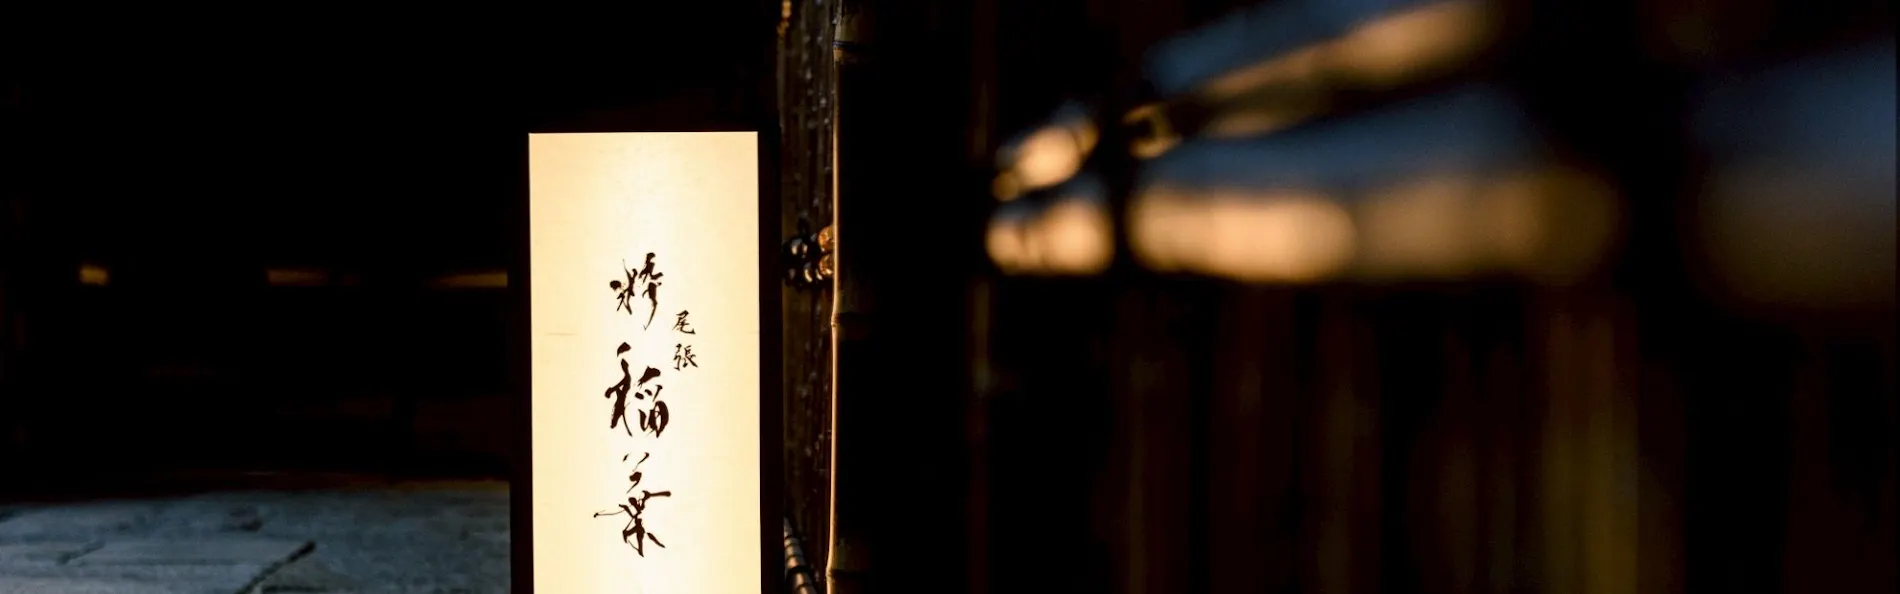 尾張
粋稲葉